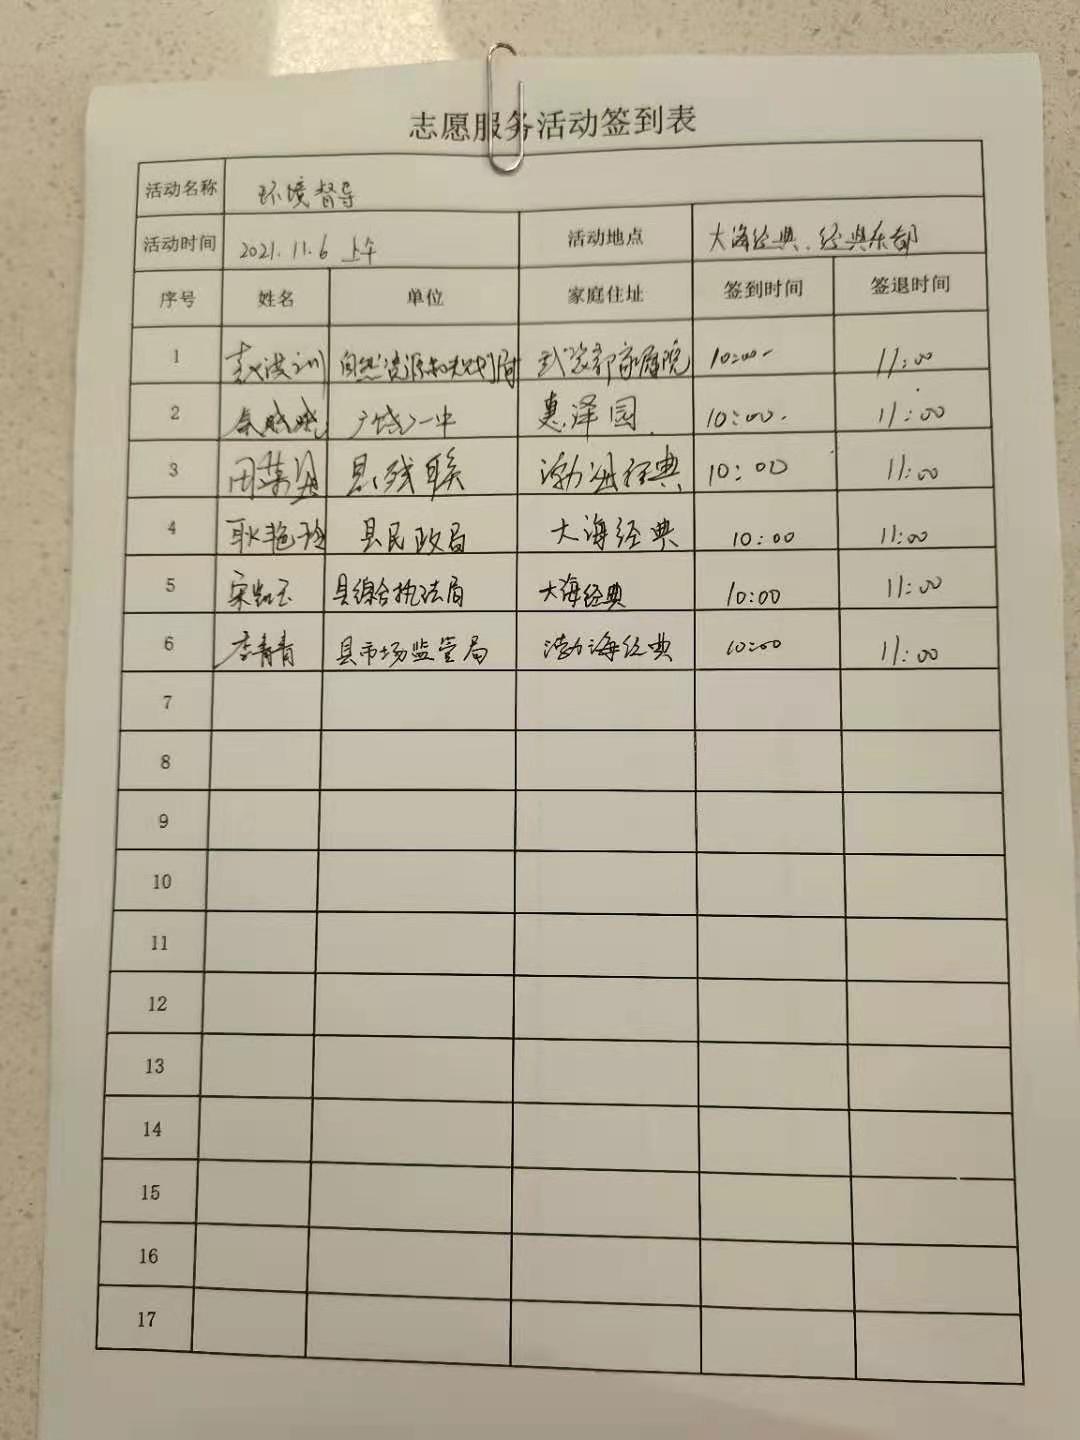 志愿服务活动签到表
活动名称 环境督导
活动时间 2021.11.6 上午 活动地点 大海经典、经典东郡
序号 姓名 单位 家庭住址 签到时间 签退时间
1 自然资源和规划局 武装部家属院 10:00 11:00
2 广饶一中 惠泽园 10:00 11:00
3 县残联 渤海经典 10:00 11:00
4 耿艳玲 县民政局 大海经典 10:00 11:00
5 宋凯玉 县综合执法局 大海经典 10:00 11:00
6 李青青 县市场监管局 渤海经典 10:00 11:00
7
8
9
10
11
12
13
14
15
16
17